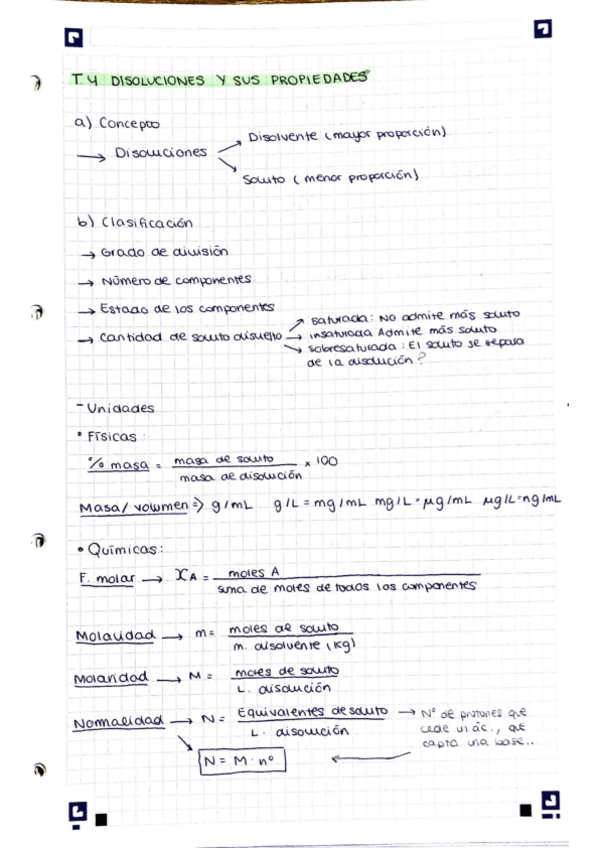 T4 DISOLUCIONES Y SUS PROPIEDADES
a) Concepto
→ Disoluciones
Disolvente (mayor proporción)
Soluto (menor proporción)
b) Clasificación
→ Grado de división
→ Número de componentes
→ Estado de los componentes
→ Cantidad de soluto disuelto
saturada: No admite más soluto
insaturada Admite más soluto
sobresaturada: El soluto se separa
de la disolución?
- Unidades
• Físicas:
% masa = masa de soluto / masa de disolución x 100
Masa/volumen => g/mL g/L = mg/mL mg/L = µg/mL µg/L = ng/mL
• Químicas:
F. molar → XA = moles A / suma de moles de todos los componentes
Molalidad → m = moles de soluto / m. disolvente (kg)
Molaridad → M = moles de soluto / L. disolución
Normalidad → N = Equivalentes de soluto / L. disolución → Nº de protones que
cede un ác., que
capta una base...
N = M · nº